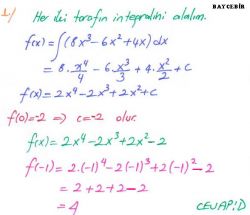 BAYCEBİR
1/ Her iki tarafın integralini alalım.
f(x) = ∫(8x³ - 6x² + 4x)dx
= 8 · x⁴/4 - 6 · x³/3 + 4 · x²/2 + c
f(x) = 2x⁴ - 2x³ + 2x² + c
f(0) = -2 ⇒ c = -2 olur.
f(x) = 2x⁴ - 2x³ + 2x² - 2
f(-1) = 2·(-1)⁴ - 2(-1)³ + 2(-1)² - 2
= 2 + 2 + 2 - 2
= 4
CEVAP: D